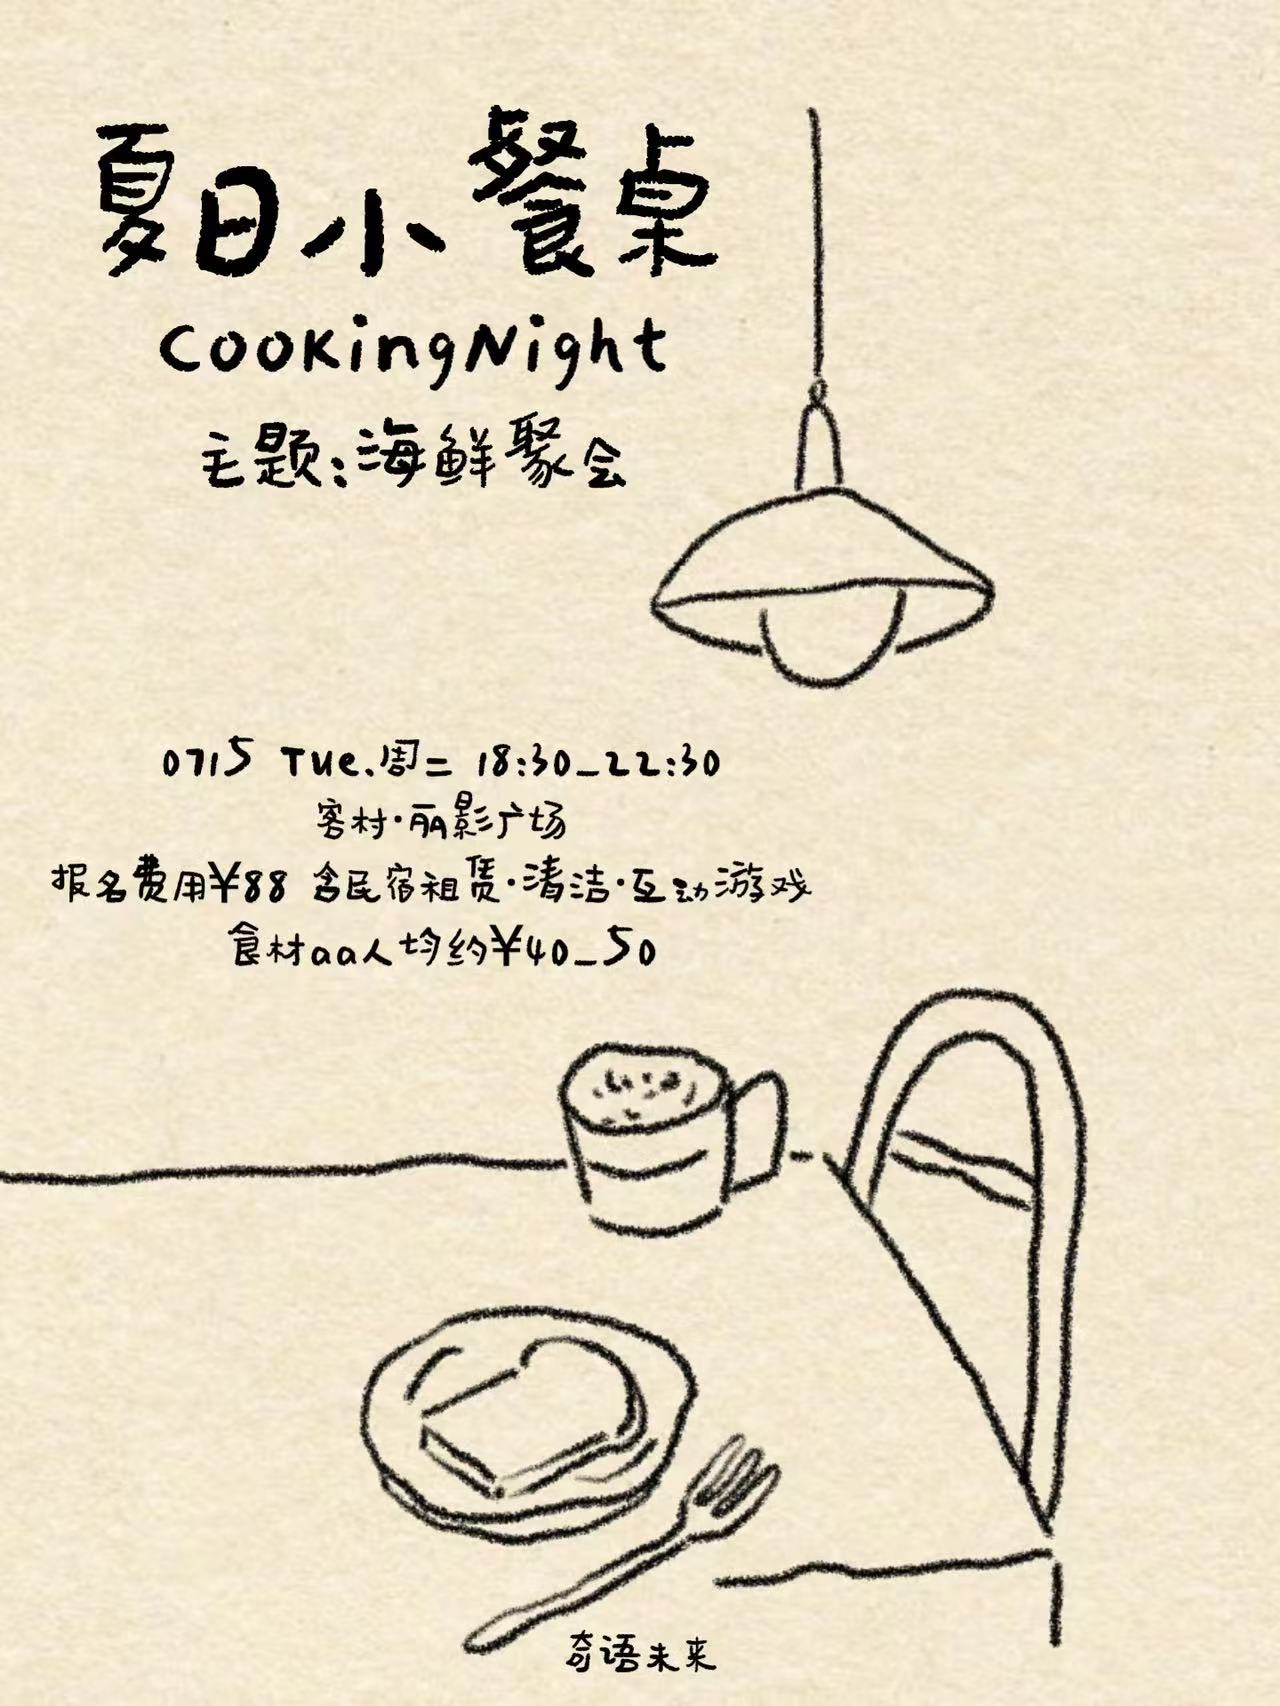 夏日小餐桌
CookingNight
主题:海鲜聚会
0715 Tue.周二 18:30_22:30
客村·丽影广场
报名费用¥88 含民宿租赁·清洁·互动游戏
食材aa人均约¥40_50
奇语未来